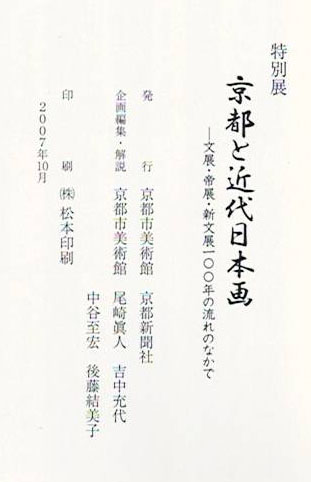 特別展
京都と近代日本画
―文展・帝展・新文展一〇〇年の流れのなかで
発行 京都市美術館 京都新聞社
企画編集・解説 京都市美術館 尾崎眞人 吉中充代
中谷至宏 後藤結美子
印刷 ㈱松本印刷
2007年10月